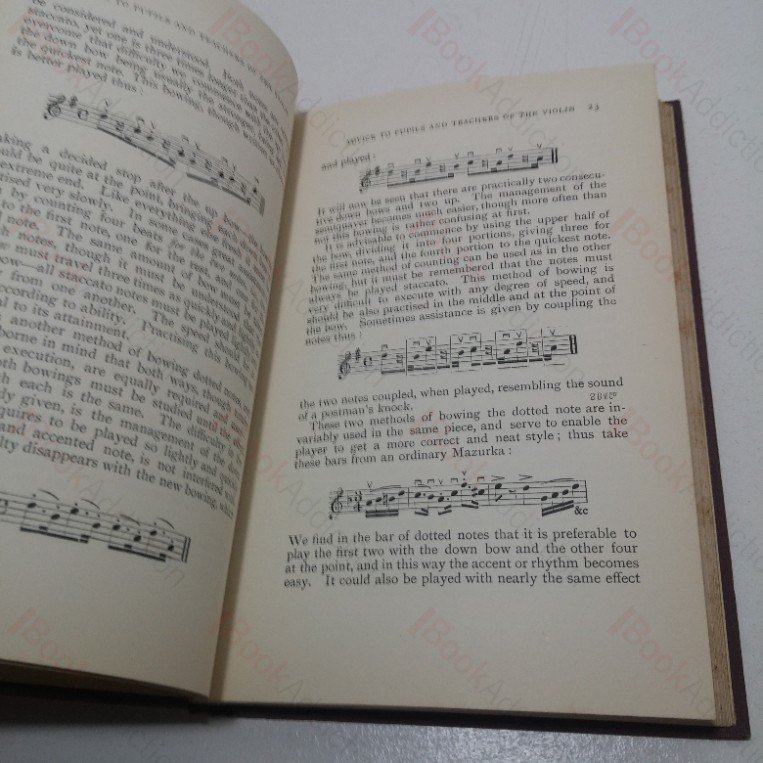 TO PUPILS AND TEACHERS OF THE
be considered and understood. Both notes are
staccato, yet one is three times longer than the
overcome that difficulty we
the down bow being usually the
the quickest note. This bowing, though
is better played thus:
aking a decided stop after the up bow
ould be quite at the point, bringing
extreme end. Like everything else
tised very slowly. In some cases great
n by counting four beats
to the first note, one for the rest,
d note. The same amount of bow must
ch notes, though it must be understood
w must travel three times as quickly
ow—all staccato notes must be played
r from one another. The speed should
ccording to ability. Practising this bowing
al to its attainment.
s another method of bowing dotted notes,
borne in mind that both ways, though
execution, are equally required
oth bowings must be studied until the
h each is the same. The difficulty
dy given, is the management of the
quires to be played so lightly and quickly
and accented note, is not interfered with
lty disappears with the new bowing, which
ADVICE TO PUPILS AND TEACHERS OF THE VIOLIN 23
and played:
It will now be seen that there are practically two consecu-
tive down bows and two up. The management of the
semiquaver becomes much easier, though more often than
not this bowing is rather confusing at first.
It is advisable to commence by using the upper half of
the bow, dividing it into four portions, giving three for
the first note, and the fourth portion to the quickest note.
The same method of counting can be used as in the other
bowing, but it must be remembered that the notes must
always be played staccato. This method of bowing is
very difficult to execute with any degree of speed, and
should be also practised in the middle and at the point of
the bow. Sometimes assistance is given by coupling the
notes thus:
the two notes coupled, when played, resembling the sound
of a postman's knock.
These two methods of bowing the dotted note are in-
variably used in the same piece, and serve to enable the
player to get a more correct and neat style; thus take
these bars from an ordinary Mazurka:
&c
We find in the bar of dotted notes that it is preferable to
play the first two with the down bow and the other four
at the point, and in this way the accent or rhythm becomes
easy. It could also be played with nearly the same effect
BookAddiction